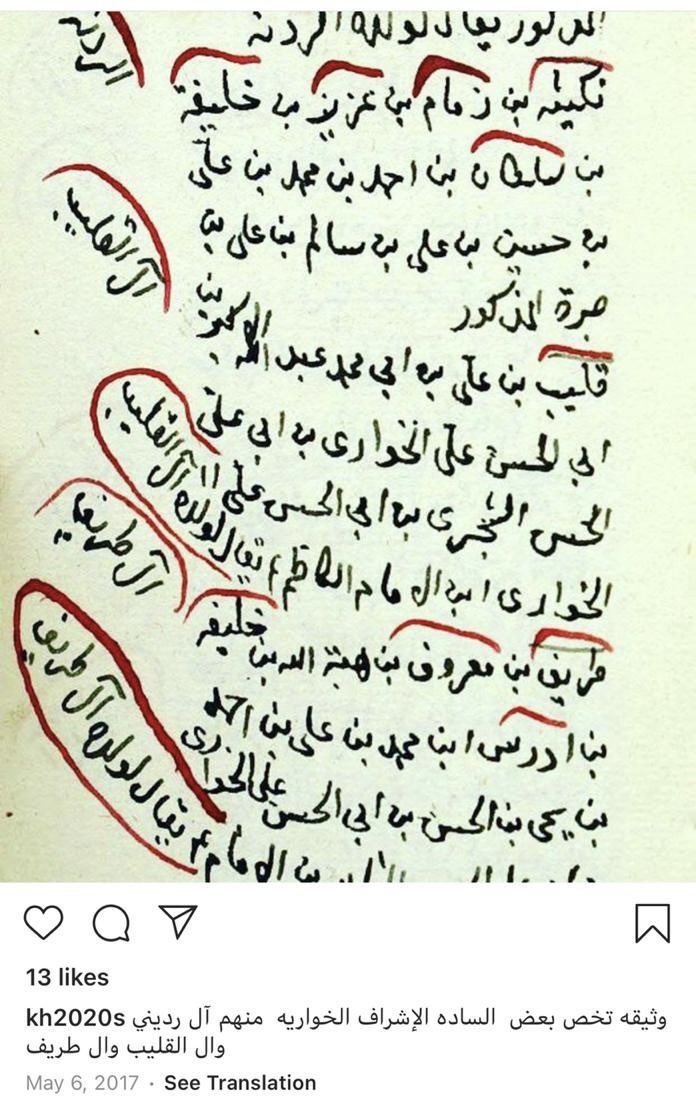 المذكور يقال لولده الردنة
الردنة
نكيثه بن زمام بن عزيز بن خليفة
بن سلطان بن احمد بن محمد بن علي
بن حسين بن علي بن سالم بن علي بن
آل القليب
صبرة المذكور
قليب بن علي بن ابي محمد عبد الله بن
ابي الحسن علي الخواری بن ابي علي
الحسن الثجری بن ابي الحسن علي
الخواری ابن الامام الكاظم ع يقال لولده آل القليب
آل طريف
طريف بن معروف بن هبة الله بن خليفة
بن ادريس ابن محمد بن علي بن احمد
بن يحيى بن الحسن بن ابي الحسن علي الخواری
بن الامام ع يقال لولده آل طريف
13 likes
kh2020s وثيقه تخص بعض الساده الإشراف الخواريه منهم آل رديني
وال القليب وال طريف
May 6, 2017 · See Translation